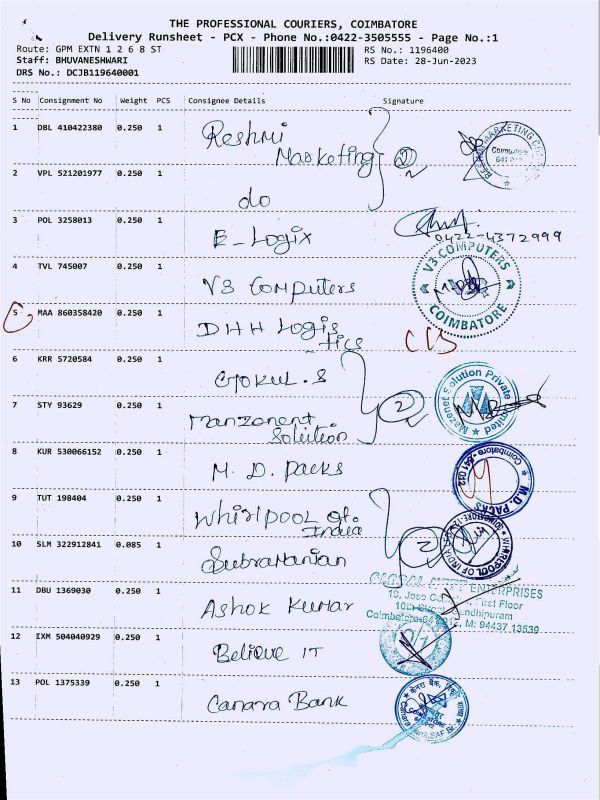 THE PROFESSIONAL COURIERS, COIMBATORE
Delivery Runsheet - PCX - Phone No.:0422-3505555 - Page No.:1
Route: GPM EXTN 1 2 6 8 ST RS No.: 1196400
Staff: BHUVANESHWARI RS Date: 28-Jun-2023
DRS No.: DCJB119640001
S No Consignment No Weight PCS Consignee Details Signature
1 DBL 410422380 0.250 1 Reshmi Marketing 2
2 VPL 521201977 0.250 1 do
3 POL 3258013 0.250 1 E-Logix
0422-4372999
4 TVL 745007 0.250 1 V3 Computers
V3 COMPUTERS COIMBATORE
5 MAA 860358420 0.250 1 DHH Logis
-tics
6 KRR 5720584 0.250 1 Gokul.S
7 STY 93629 0.250 1 Manzenent Solution 2
Mazenet Solution Private Limited
8 KUR 530066152 0.250 1 M.D. Packs
M.D. PACKS Coimbatore - 641 012
9 TUT 198404 0.250 1 Whirlpool of India
WHIRLPOOL OF INDIA
10 SLM 322912841 0.085 1 Subramanian 2
ENTERPRISES
First Floor
11 DBU 1369030 0.250 1 Ashok Kumar
M: 94437 13539
12 IXM 504040929 0.250 1 Believe IT
13 POL 1375339 0.250 1 Canara Bank